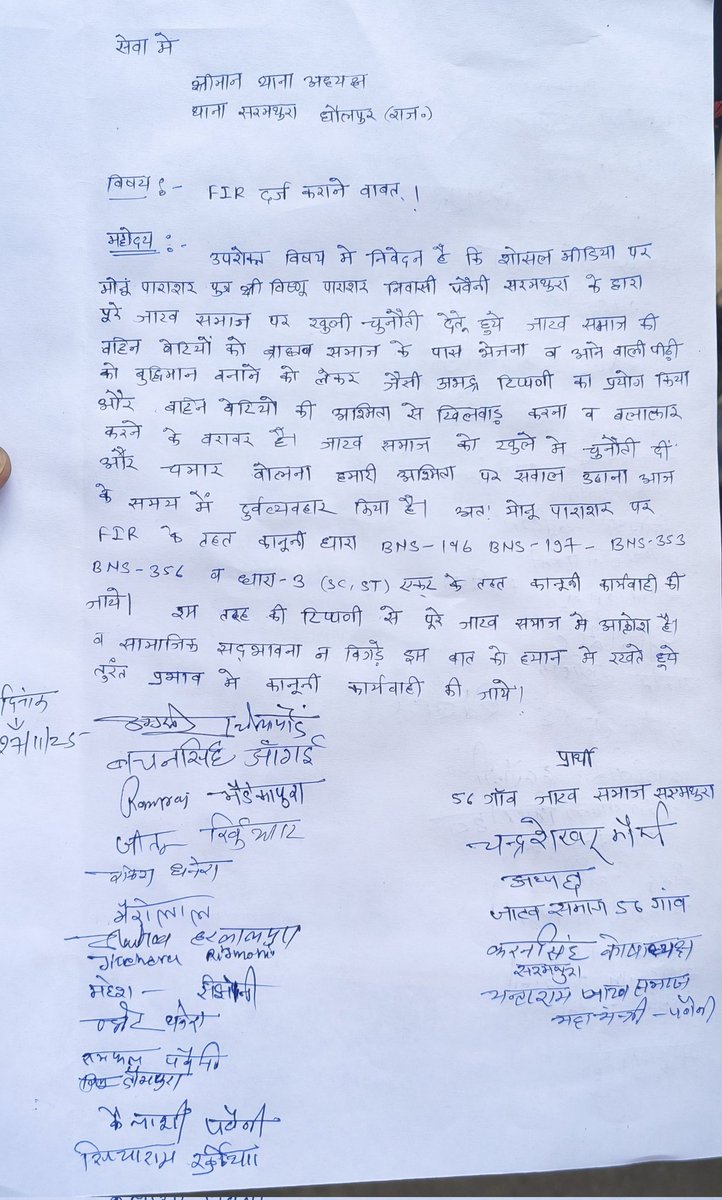 सेवा मे
श्रीमान थाना अध्यक्ष
थाना सरमथुरा धौलपुर (राज०)
विषय :- FIR दर्ज कराने वावत् ।
महोदय :- उपरोक्त विषय मे निवेदन है कि शोसल मीडिया पर
मोनूं पाराशर पुत्र श्री विष्णू पाराशर निवासी पवैनी सरमथुरा के द्वारा
पूरे जाटव समाज पर खुली चुनौती देते हुये जाटव समाज की
वहिन वेटियों को ब्राह्मण समाज के पास भेजना व आने वाली पीढ़ी
को वुद्धिमान वनाने को लेकर जैसी अभद्र टिप्पणी का प्रयोग किया
और वहिन वेटियो की अश्मिता से खिलवाड़ करना व वलात्कार
करने के वरावर है। जाटव समाज को खुले मे चुनौती दी
और चमार वोलना हमारी अश्मिता पर सवाल उठाना आज
के समय में दुर्वव्यवहार किया है। अतः मोनू पाराशर पर
FIR के तहत कानूनी धारा BNS-196 BNS-197- BNS-353
BNS-356 व धारा-3 (SC, ST) एक्ट के तहत कानूनी कार्यवाही की
जाये। इस तरह की टिप्पणी से पूरे जाटव समाज मे आक्रोश है।
व सामाजिक सद्भावना न विगड़े इस वात को ध्यान मे रखते हुये
तुरंत प्रभाव मे कानूनी कार्यवाही की जाये।
दिनांक
27/11/25
वचनसिंह आँगई
Ramraj
भैरोलाल
महेश -
रामफल पवैनी
कैलाशी पवैनी
सियाराम
प्रार्थी
56 गाँव जाटव समाज सरमथुरा
चन्द्रशेखर मौर्य
अध्यक्ष
जाटव समाज 56 गांव
करनसिंह कोषाध्यक्ष
सरमथुरा
जाटव समाज
महामंत्री - पवैनी